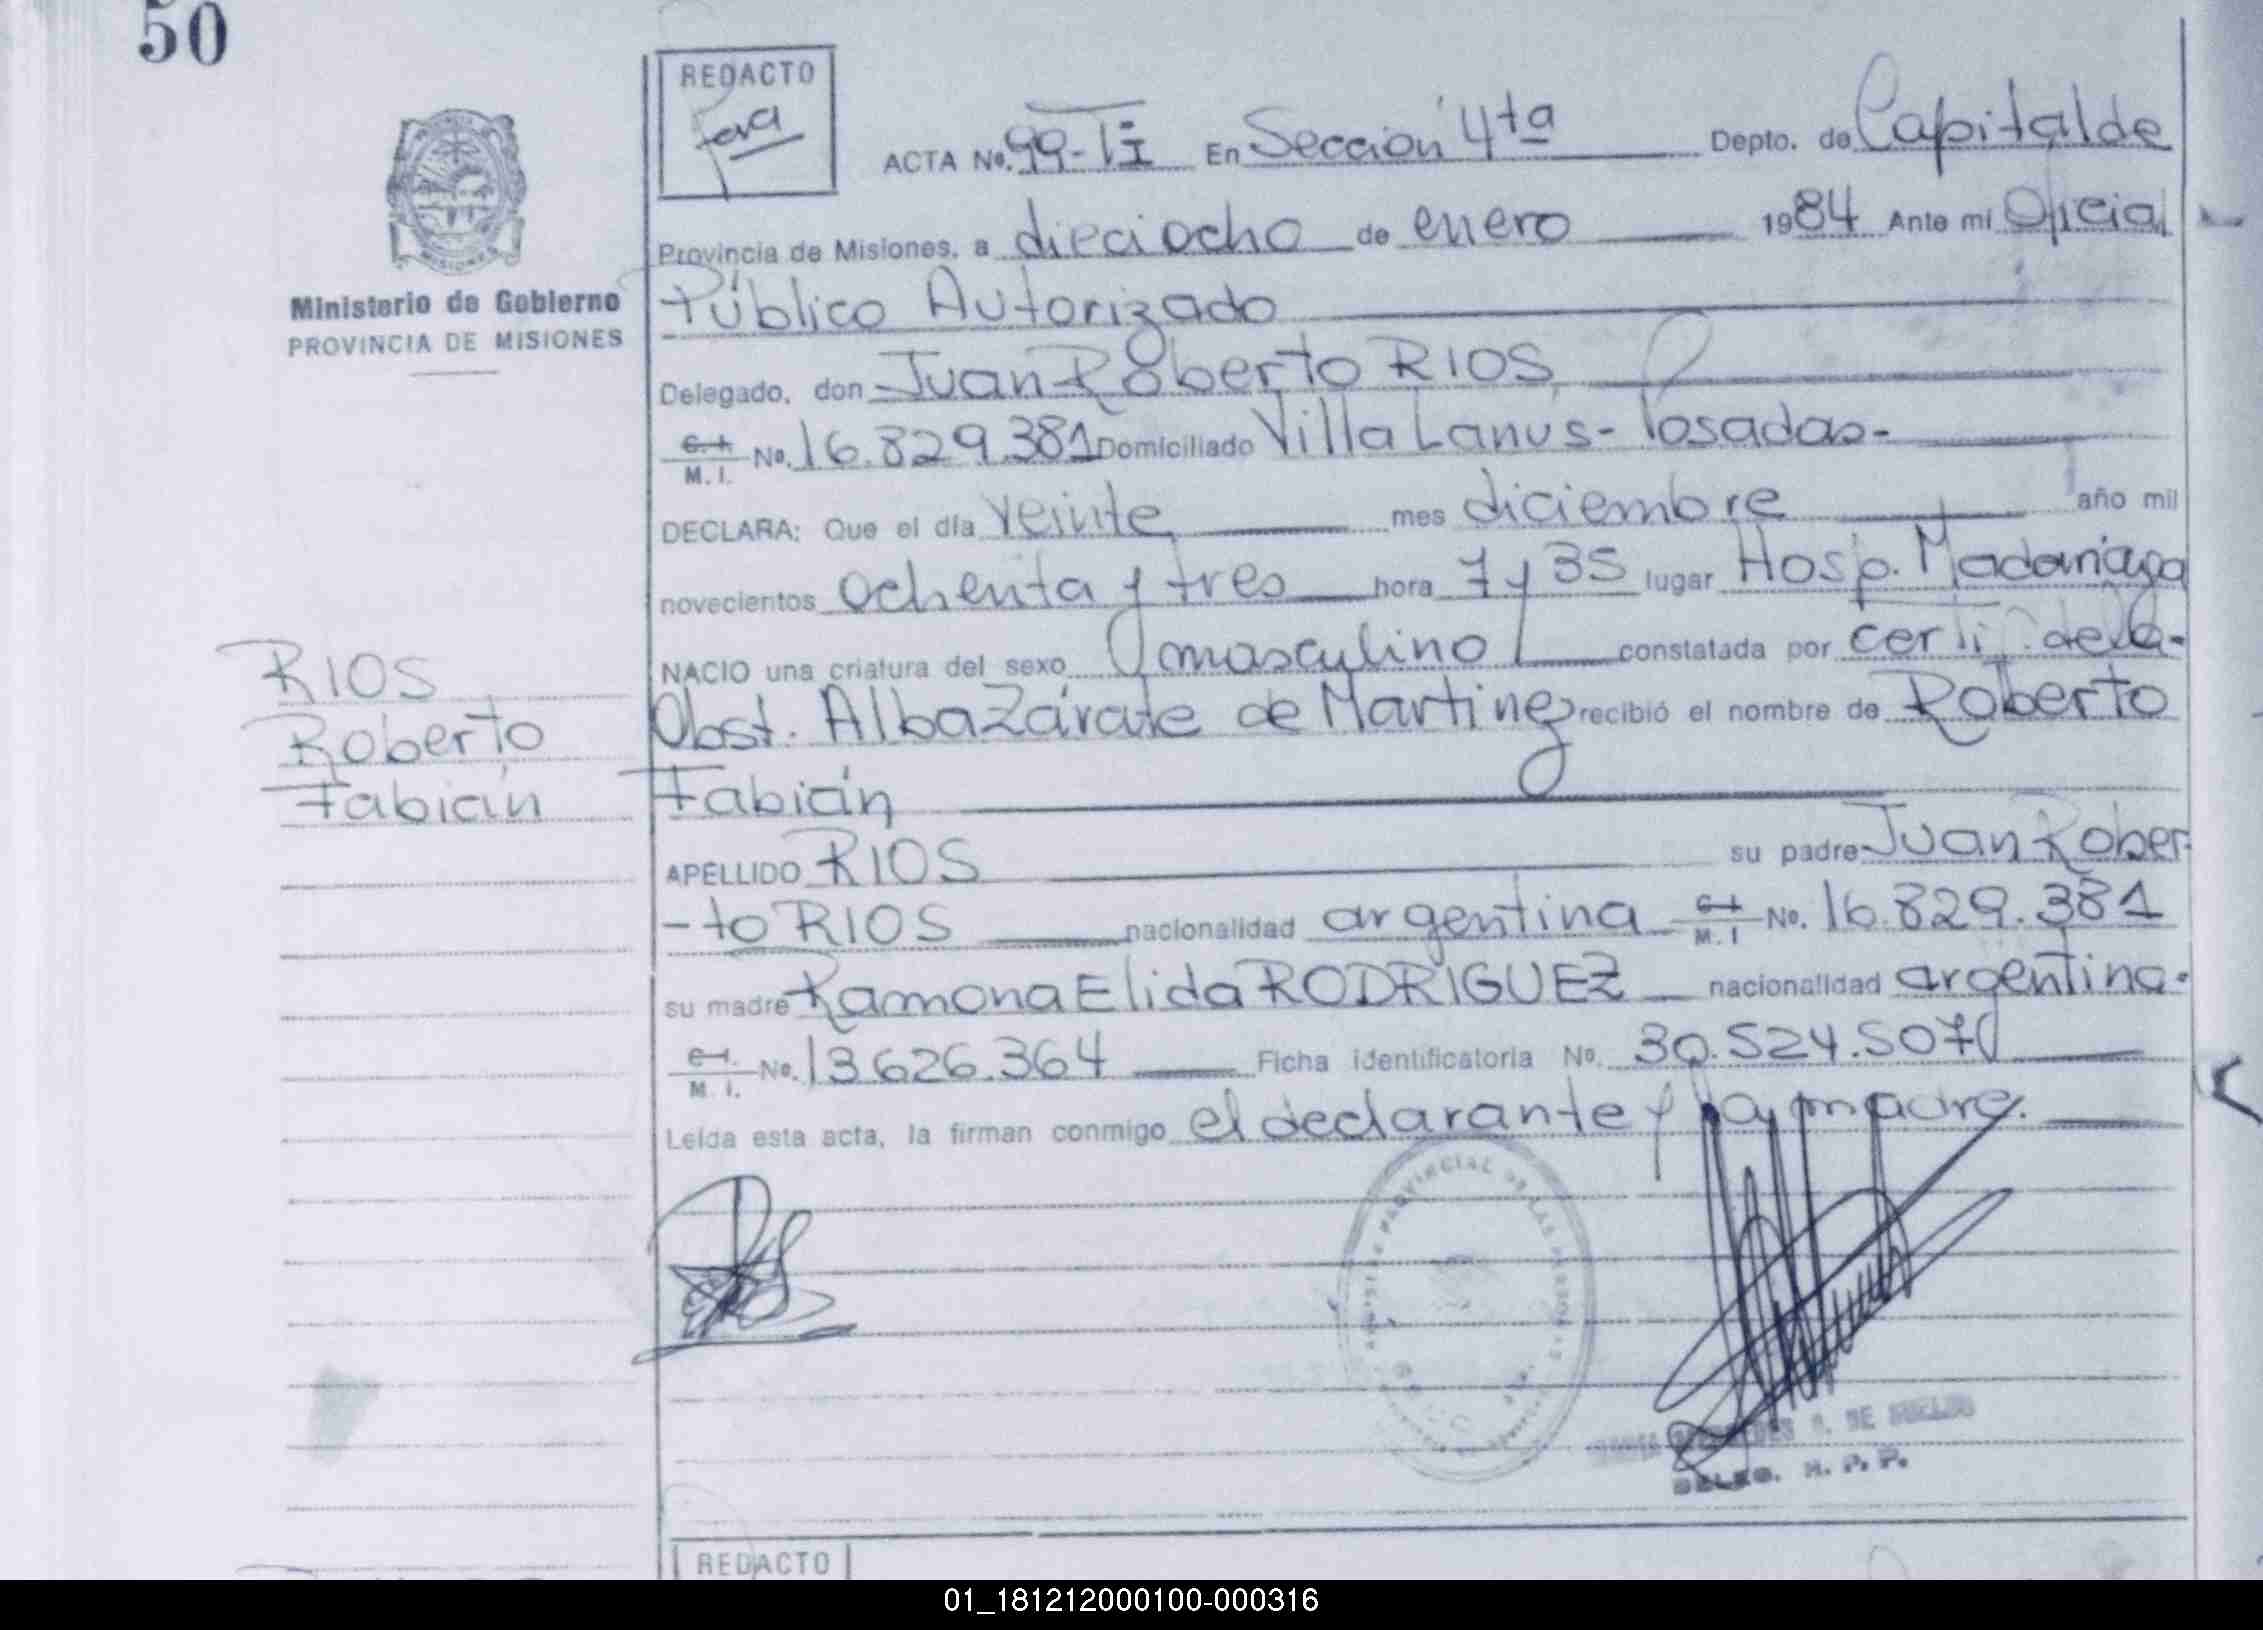 50
REDACTO
ACTA No. 99-TI En Sección 4ta Depto. de Capital de
Provincia de Misiones, a dieciocho de enero 1984 Ante mi Oficial
Ministerio de Gobierno
PROVINCIA DE MISIONES
Público Autorizado
Delegado, don Juan Roberto RIOS
C.I. M.I. No. 16.829.381 Domiciliado Villa Lanús - Posadas -
DECLARA: Que el día veinte mes diciembre año mil
novecientos ochenta y tres hora 7 y 35 lugar Hosp. Madariaga
NACIO una criatura del sexo masculino constatada por certif. de la
Obst. Alba Zárate de Martinez recibió el nombre de Roberto
Fabián
RIOS
Roberto
Fabián
APELLIDO RIOS su padre Juan Rober-
-to RIOS nacionalidad argentina C.I. M.I No. 16.829.381
su madre Ramona Elida RODRIGUEZ nacionalidad argentina.
C.I. M.I. No. 13.626.364 Ficha identificatoria No. 30.524.507
Leída esta acta, la firman conmigo el declarante y la madre.
DE SUELDO
DELEG. R. P. P.
REDACTO
01_181212000100-000316